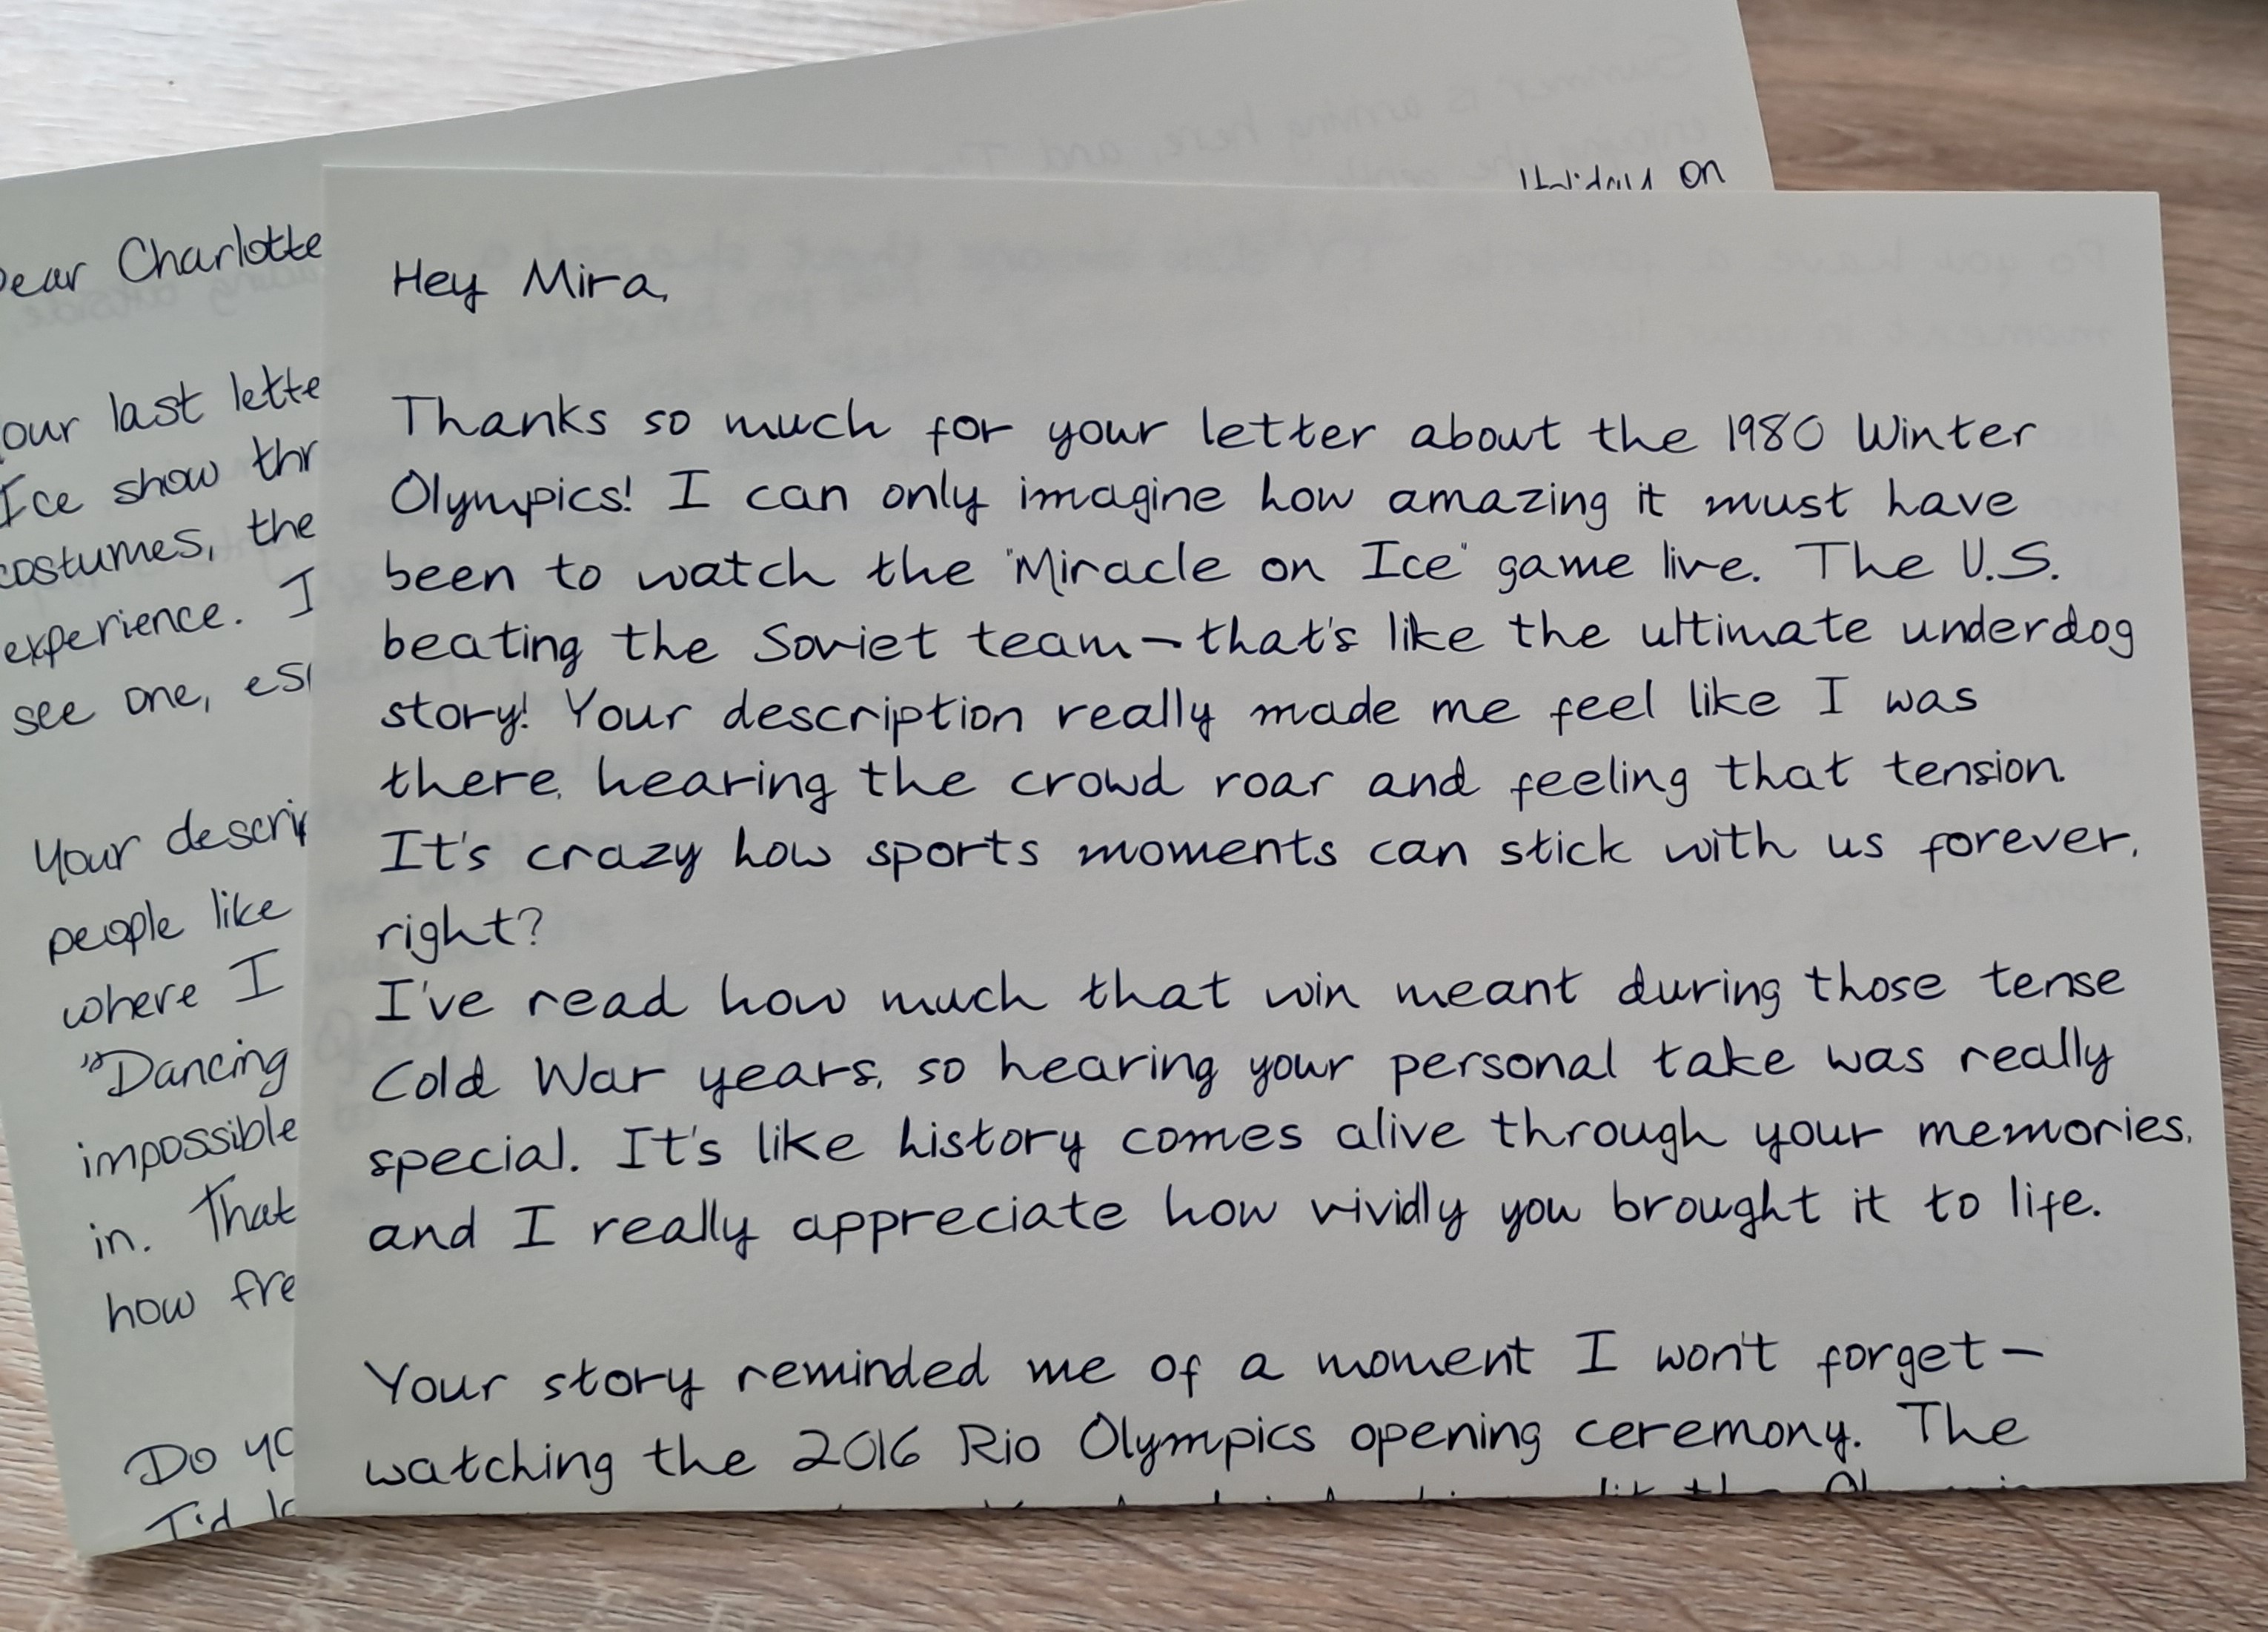 Hey Mira,
Thanks so much for your letter about the 1980 Winter
Olympics! I can only imagine how amazing it must have
been to watch the "Miracle on Ice" game live. The U.S.
beating the Soviet team—that's like the ultimate underdog
story! Your description really made me feel like I was
there, hearing the crowd roar and feeling that tension.
It's crazy how sports moments can stick with us forever,
right?
I've read how much that win meant during those tense
Cold War years, so hearing your personal take was really
special. It's like history comes alive through your memories,
and I really appreciate how vividly you brought it to life.
Your story reminded me of a moment I won't forget—
watching the 2016 Rio Olympics opening ceremony. The
Charlotte
last
Ice show
costumes, the
experience. I
see one,
Your
people like
where I
"Dancing
impossible
in. That
how
Do
Holiday on